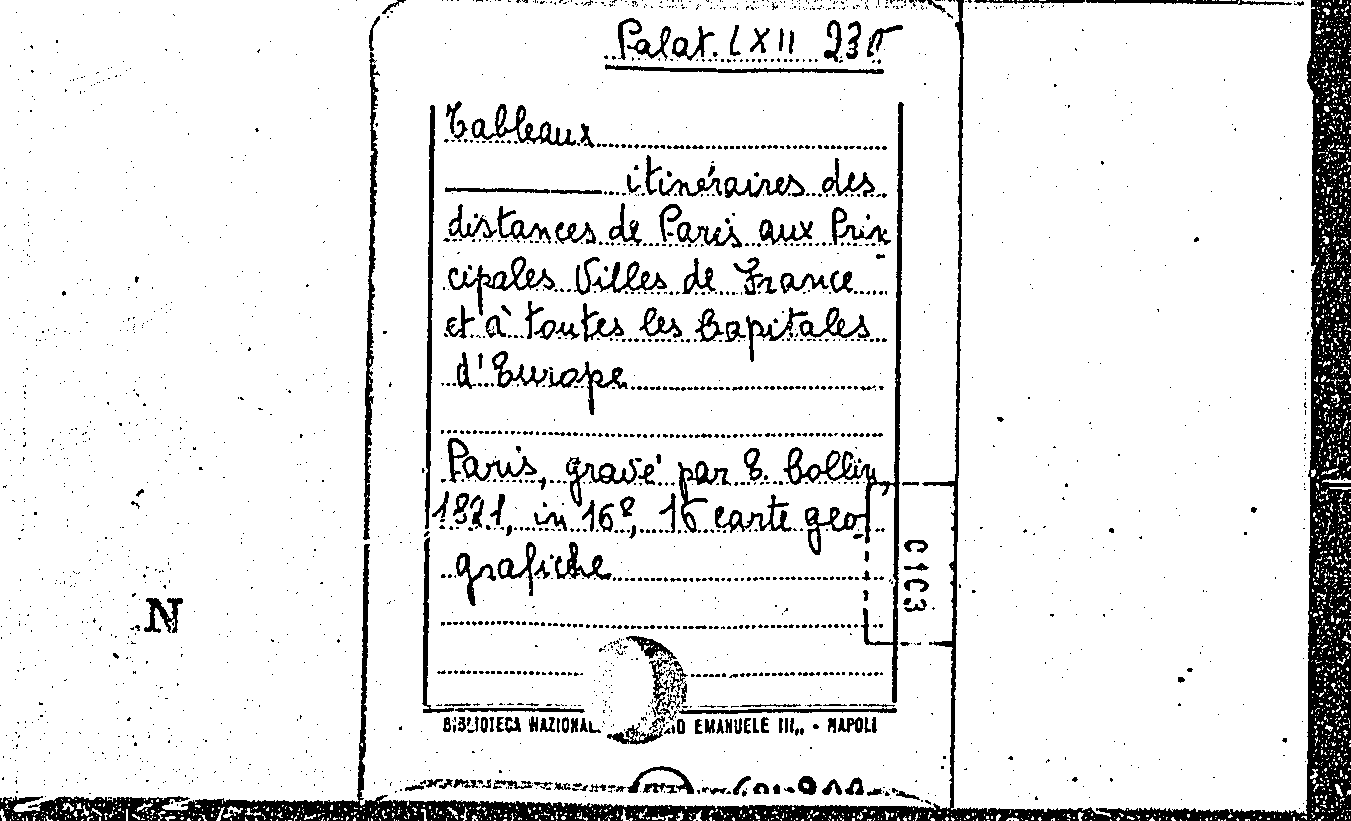 Palat. LXII 235
Tableaux
itinéraires des
distances de Paris aux Prin-
cipales Villes de France
et à toutes les Capitales
d'Europe
Paris, gravé par E. Collin,
1821, in 16º, 16 carte geo-
grafiche
C1C3
N
BIBLIOTECA NAZIONAL EMANUELE III,, - NAPOLI